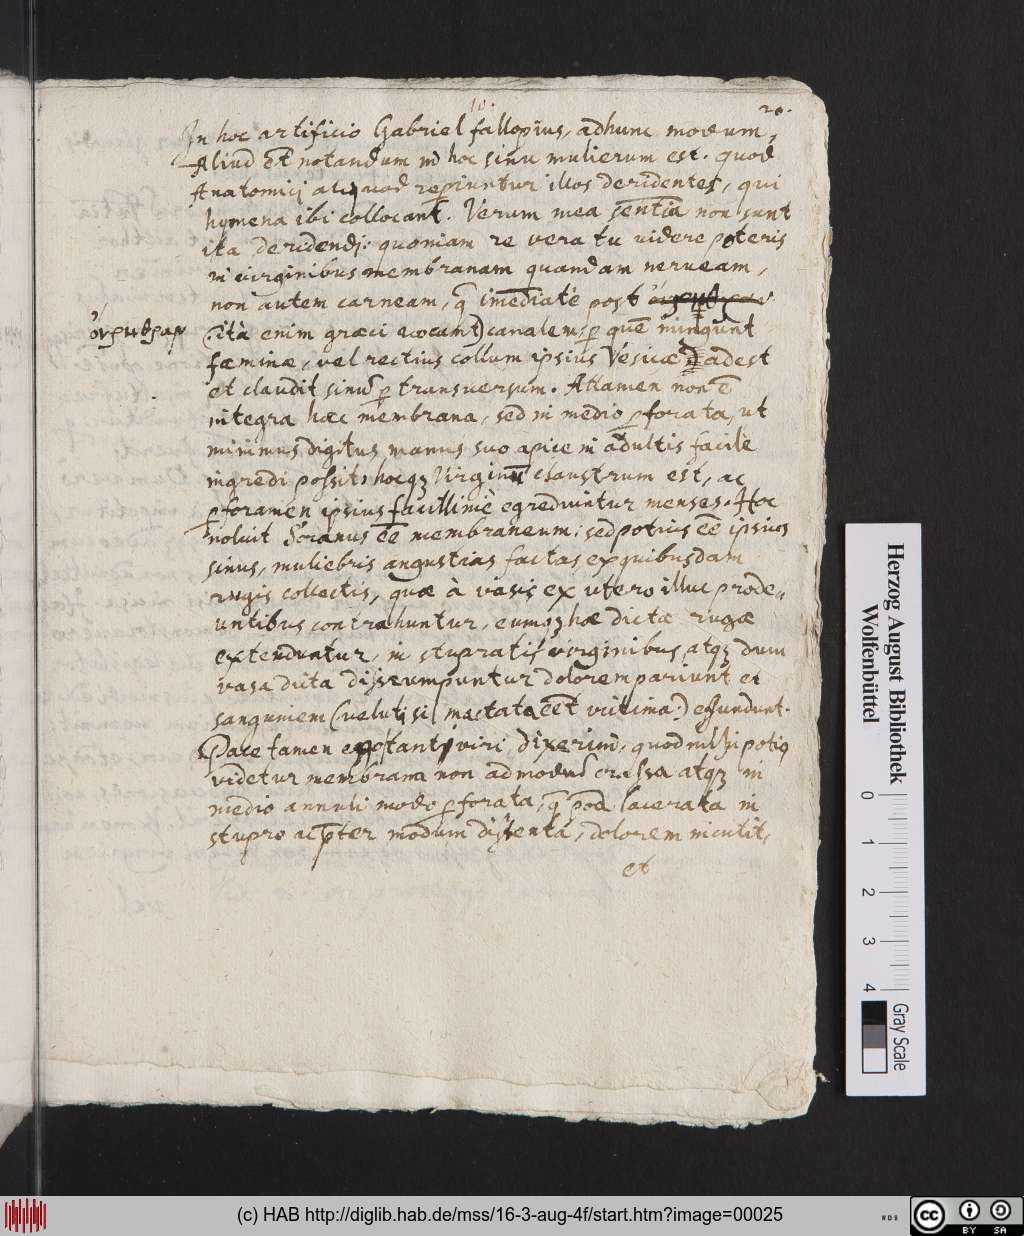 10.
20.
In hoc artificio Gabriel fallopius, adhunc modum,
Aliud et notandum in hoc sinu mulierum est. quod
Anatomicj aliquod reperiuntur illos deridentes, qui
hymena ibi collocant. Verum mea sentia non sunt
ita deridendj: quoniam re vera tu videre poteris
in virginibus membranam quandam nerueam,
non autem carneam, q̃ imediatè post
ὀυρηθραν
(:ità enim græci vocant) canalem, p quẽ mingunt
fæminæ, vel rectius collum ipsius Vesicæ adest
et claudit sinũ p transuersum. Attamen non ẽ
integra hæc membrana, sed in medio pforata, ut
minimus digitus manus suo apice in adultis facile
ingredi possit, hocqꝫ Virginũ claustrum est, ac
p foramen ipsius facillimè egrediuntur menses. Hoc
noluit Soranus eẽ membraneum: sed potius eẽ ipsius
sinus, muliebris angustias factas ex quibusdam
rugis collectis, quæ à vasis ex utero illuc prode„
untibus contrahuntur, cumqꝫ hæ dictæ rugæ
extenduntur, in stupratis virginibus, atqꝫ dum
vasa dicta disrumpuntur dolorem pariunt et
sanguinem (:veluti si mactata eẽt victima:) effundunt.
Pace tamen viri dixerim, quod mihi potiq
videtur membrana non admodũ crassa atqꝫ in
medio annuli modo pforata, q̃ lacerata in
stupro ac pter modum distenta, dolorem incutit,
et
Herzog August Bibliothek
Wolfenbüttel
0 1 2 3 4
Gray Scale
(c) HAB http://diglib.hab.de/mss/16-3-aug-4f/start.htm?image=00025
WDB
cc
BY SA